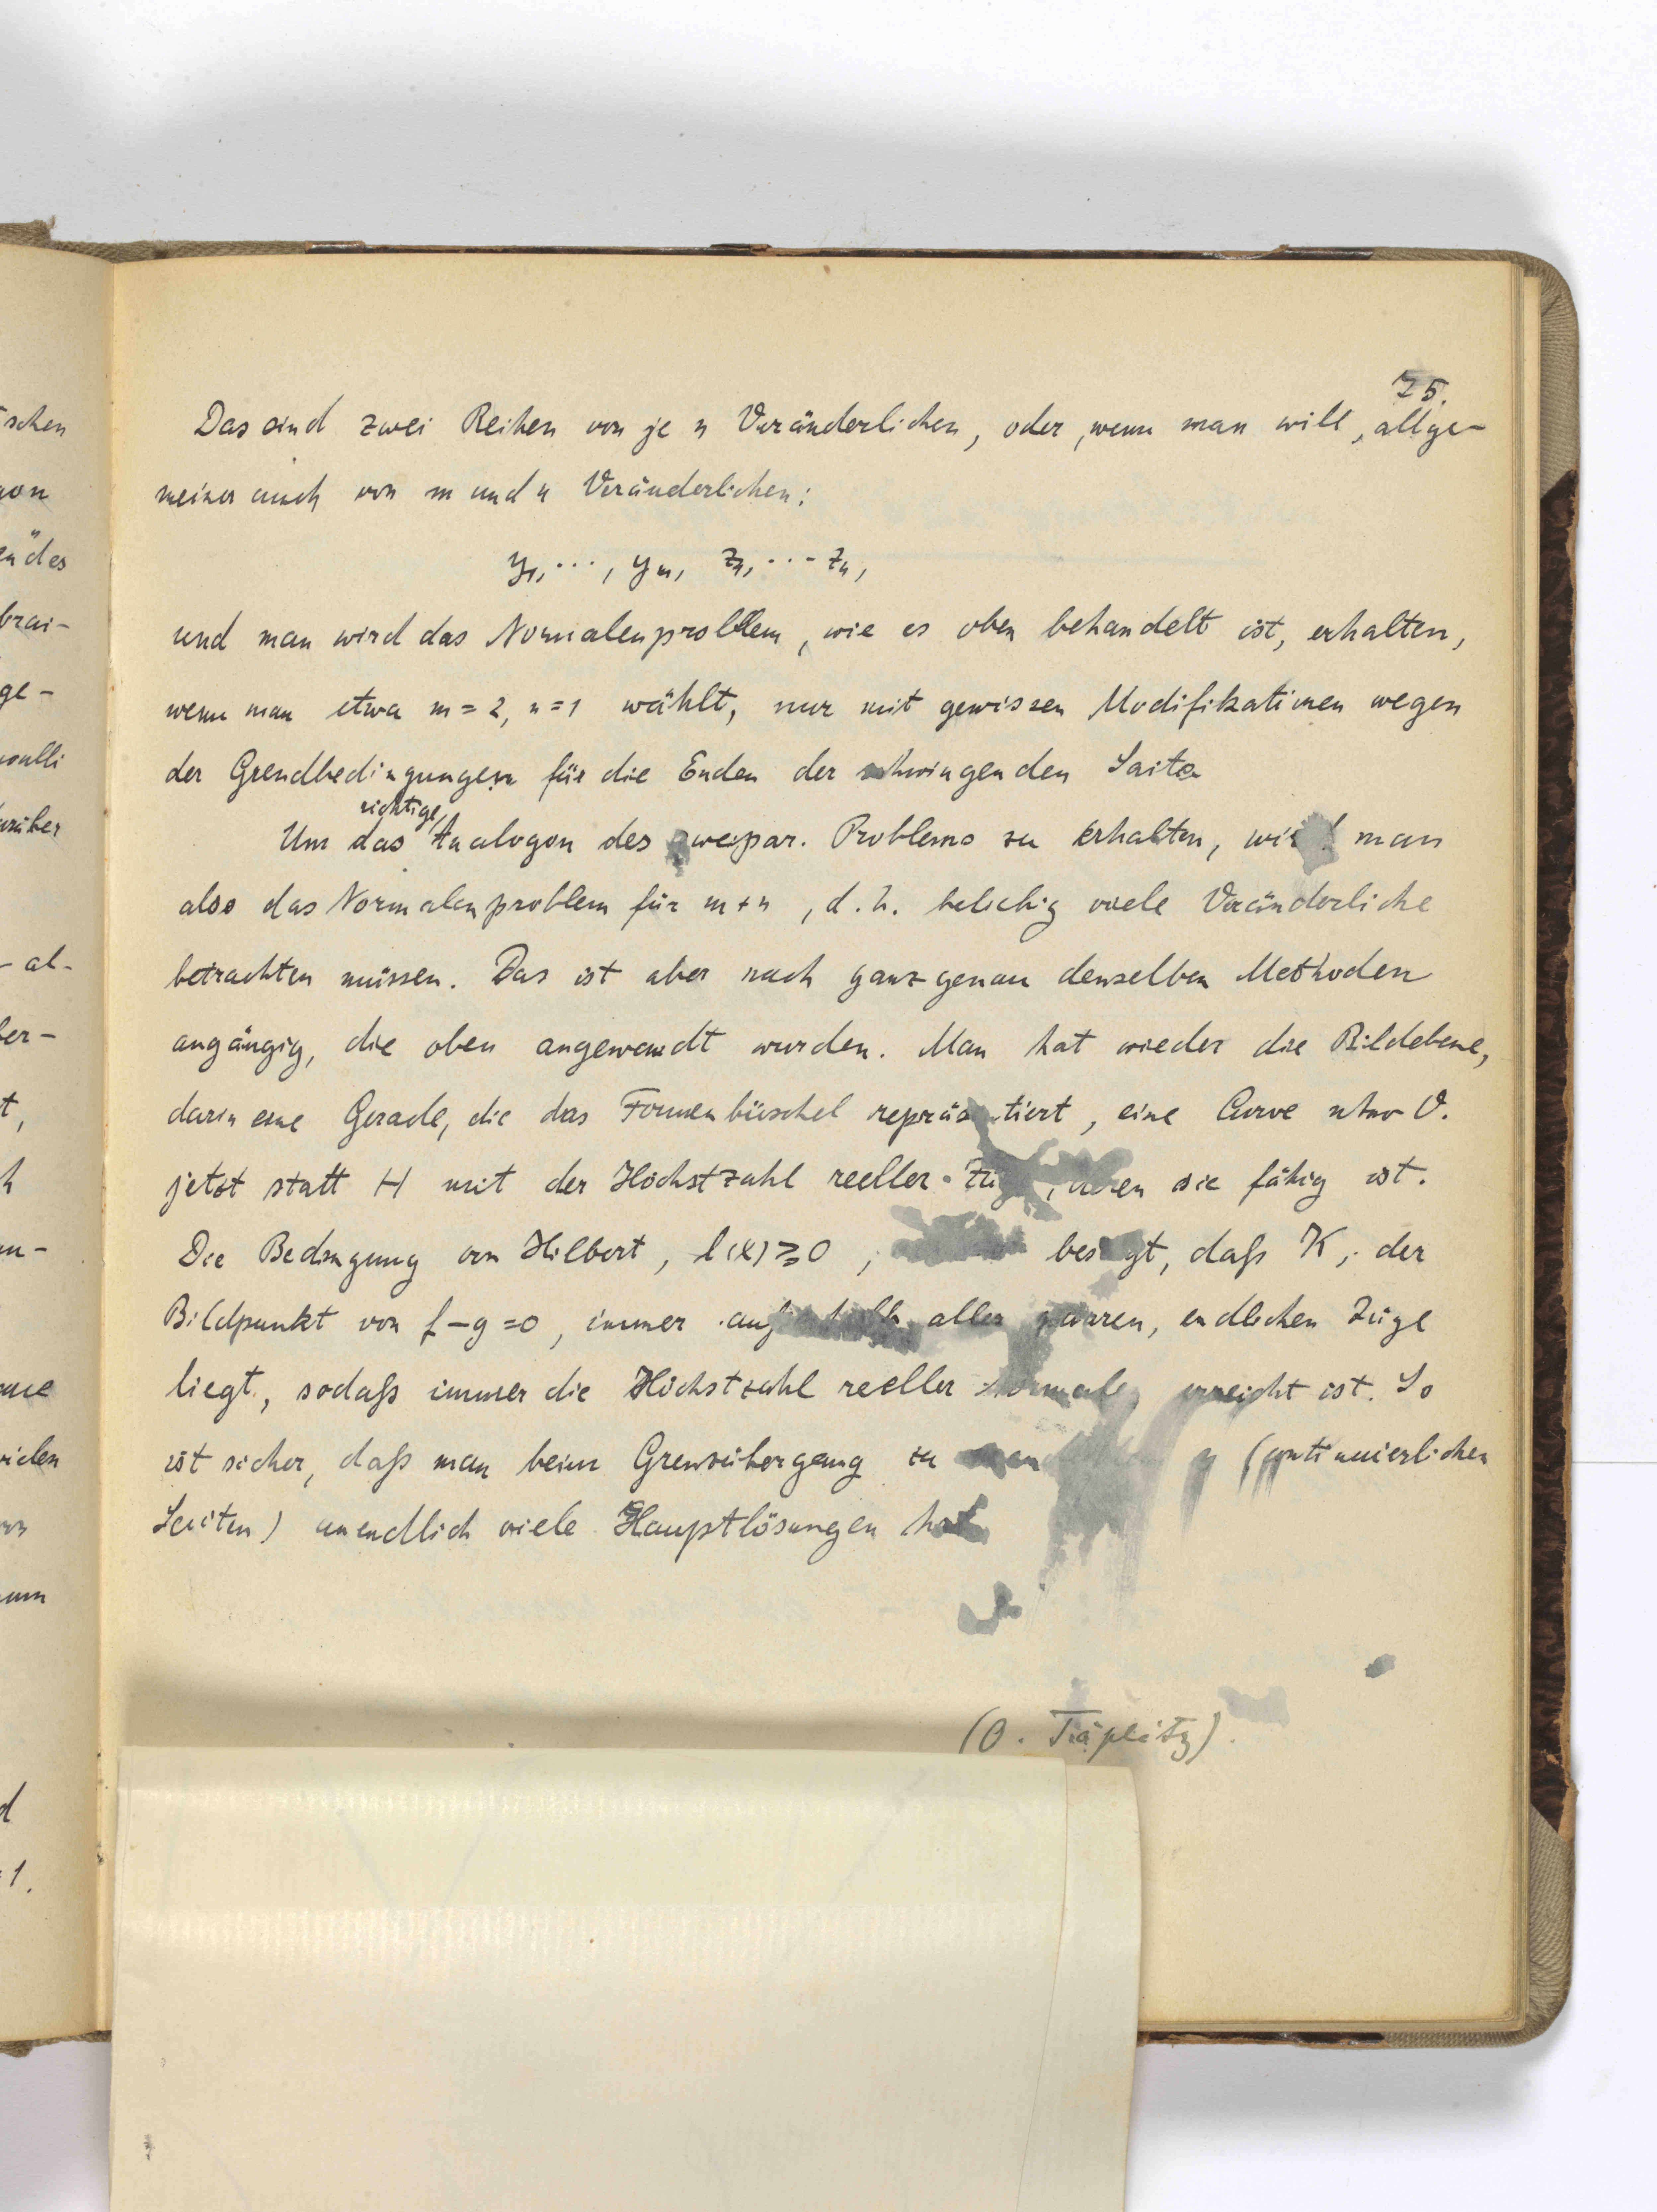 75.
Das sind zwei Reihen von je n Veränderlichen, oder, wenn man will, allge-
meiner auch von m und n Veränderlichen:
y₁, ⋯, yₘ, z₁, ⋯ zₙ,
und man wird das Normalenproblem, wie es oben behandelt ist, erhalten,
wenn man etwa m = 2, n = 1 wählt, nur mit gewissen Modifikationen wegen
der Grendbedingungen für die Enden der schwingenden Saite
richtige
Um das Analogon des zweipar. Problems zu erhalten, wird man
also das Normalenproblem für m + n, d. h. beliebig viele Veränderliche
betrachten müssen. Das ist aber nach ganz genau denselben Methoden
angängig, die oben angewandt wurden. Man hat wieder die Bildebene,
darin eine Gerade, die das Formenbüschel repräsentiert, eine Curve
jetzt statt H mit der Höchstzahl reeller Züge, deren sie fähig ist.
Die Bedingung von Hilbert, l(x) ≥ 0, besagt, daß K, der
Bildpunkt von f – g = 0, immer außerhalb aller paaren, endlichen Züge
liegt, sodaß immer die Höchstzahl reeller Normalen erreicht ist. So
ist sicher, daß man beim Grenzübergang zu (continuierlichen
Saiten) unendlich viele Hauptlösungen hat
(O. Töplitz).
schen
gon
des
brai-
ge-
noulli
rüber
- al-
ber-
t,
h
en-
vielen
um
d
1.